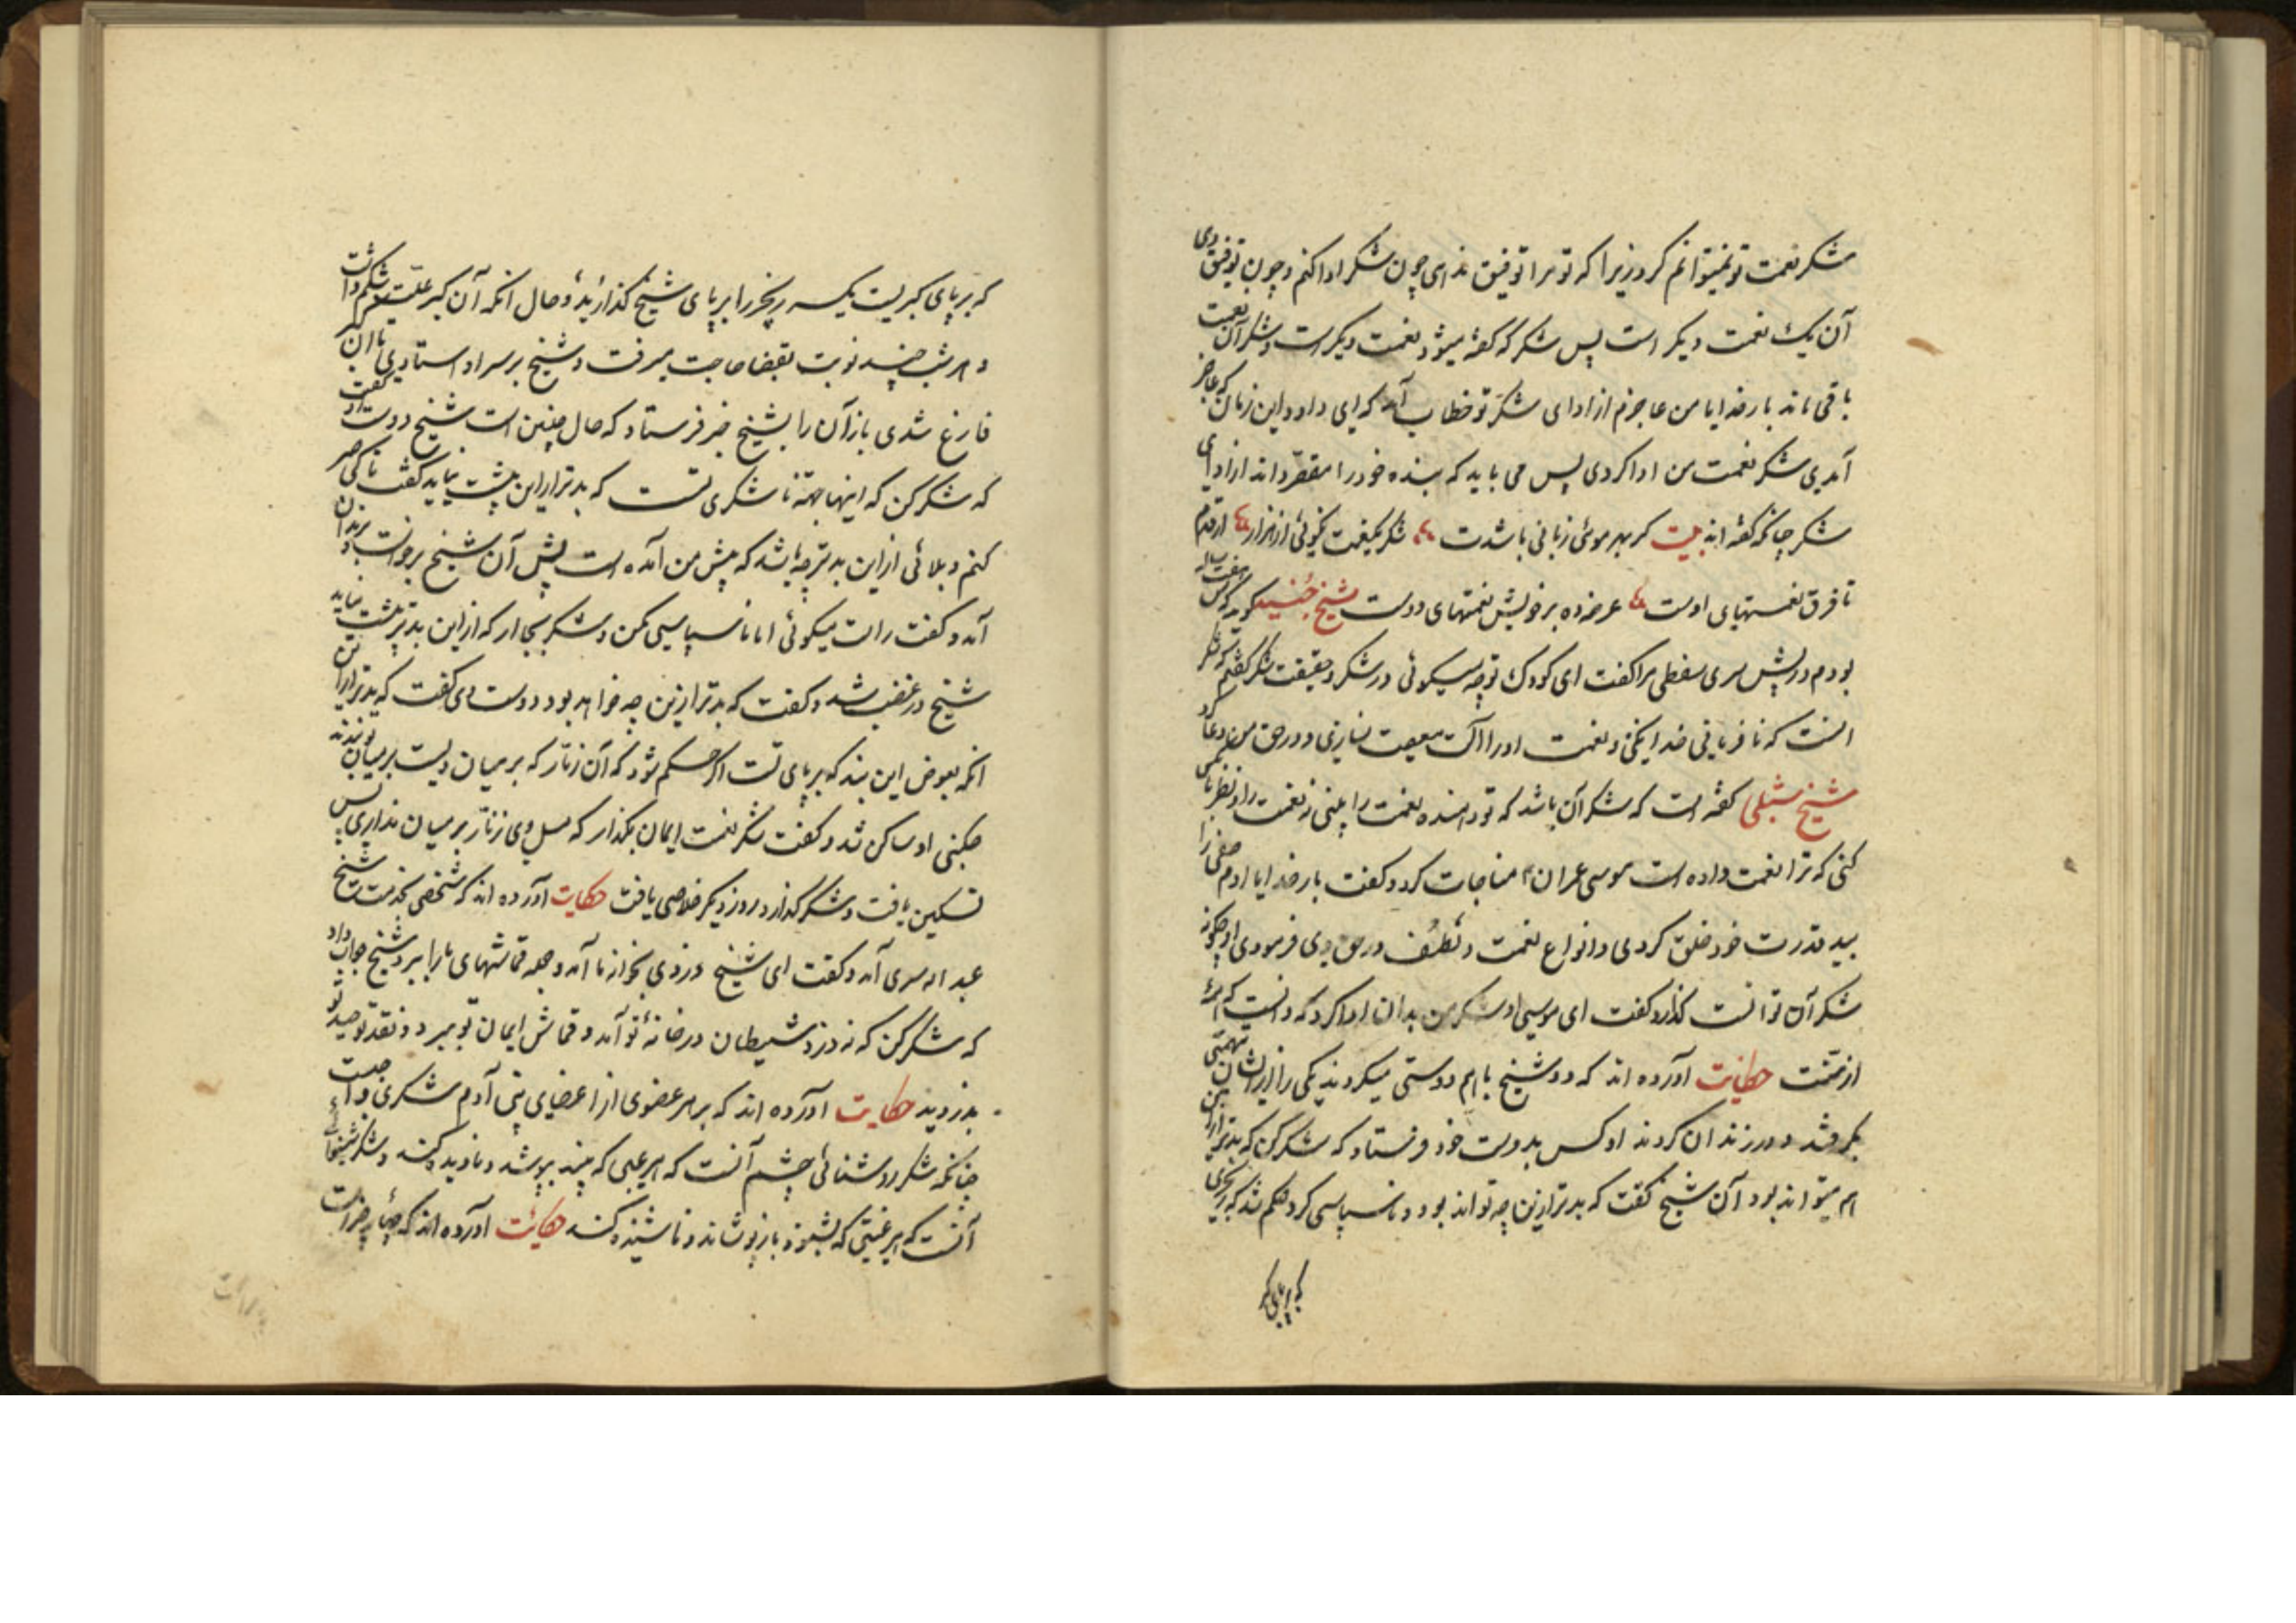 شکر نعمت تو نمیتوانم کرد زیرا که تو مرا توفیق ندای چون شکر ادا کنم و چون توفیق دی
آن یک نعمت دیگر است پس شکر که گفته میشود نعمت دیگر است و شکر آن نعمت
باقی ماند بار خدایا من عاجزم از ادای شکر تو خطاب آمد که ای داود این زمان که عاجز
آمدی شکر نعمت من ادا کردی پس می باید که بنده خود را مقصّر داند از ادای
شکر چنانکه گفته اند بیت گر بهر موئی زبانی باشدت شکر یکنعمت نگوئی از هزار از قدم
تا فرق نعمتهای اوست عرضه ده بر خویش نعمتهای دوست شیخ جنید گوید که من هفت ساله
بودم در پیش سری سقطی مرا گفت ای کودک تو چه میگوئی در شکر و حقیقت شکر گفتم که شکر
انست که نافرمانی خدا نکنی و نعمت او را آلت معصیت نسازی و در حق من دعا کرد
شیخ شبلی گفته است که شکر آن باشد که تو دهنده نعمت را بینی نه نعمت را و نظر بآن کس
کنی که ترا نعمت داده است موسی عمران ۴ مناجات کرد و گفت بار خدایا ادم صفی را
بید قدرت خود خلق کردی و انواع نعمت و تلطّف در حق وی فرمودی او چگونه
شکر آن توانست گذارد گفت ای موسی او شکر من بدان ادا کرد که دانست که همه
از منست حکایت آورده اند که دو شیخ باهم دوستی میکردند یکی را از ایشان بتهمتی
بگرفتند و در زندان کردند او کس بدوست خود فرستاد که شکر کن که بدتر از این
هم میتواند بود آن شیخ گفت که بدتر ازین چه تواند بود و ناسپاسی کرد حکم شد که زنجیری
که بر پای گبر
که بر پای گبریست یکسر زنجیر را بر پای شیخ گذارید و حال انکه آن گبر علّت شکم داشت
و هر شب چند نوبت بقضا حاجت میرفت و شیخ بر سر او استادی تا آن گبر
فارغ شدی باز آن را بشیخ خبر فرستاد که حال چنین است شیخ دوست او گفت
که شکر کن که اینها جهة ناشکری تست که بدتر از این پیشت بیاید گفت تا کی صبر
کنم و بلائی از این بدتر چه باشد که پیش من آمده است پس آن شیخ برخواست و بزندان
آمد و گفت راست میگوئی اما ناسپاسی مکن و شکر بجا ار که از این بدتر پیشت نیاید
شیخ در غضب شد و گفت که بدتر ازین چه خواهد بود دوست وی گفت که بدتر از این
انکه بعوض این بند که بر پای تست اگر حکم شود که آن زنّار که بر میان ویست بر میان تو بندند
چکنی او ساکن شد و گفت شکر نعمت ایمان بگذار که مسل وی زنّار بر میان نداری پس
تسکین یافت و شکر گذارد روز دیگر خلاصی یافت حکایت آورده اند که شخصی بخدمت شیخ
عبد اله سری آمد و گفت ای شیخ دزدی بخوانه ما آمد و جمله قماشهای ما را ببرد شیخ جواب داد
که شکر کن که نه دزد شیطان در خانهٔ تو آمد و قماش ایمان تو ببرد و نقد توحید تو
بدزدید حکایت اورده اند که بر هر عضوی از اعضای بنی آدم شکری واجبست
چنانکه شکر روشنائی چشم آنست که هر عیبی که بیند بپوشد و نادیده کند و شکر شنوائی
آنست که هر غیبتی که بشنود بازپوشاند و ناشنیده کند حکایت اورده اند که